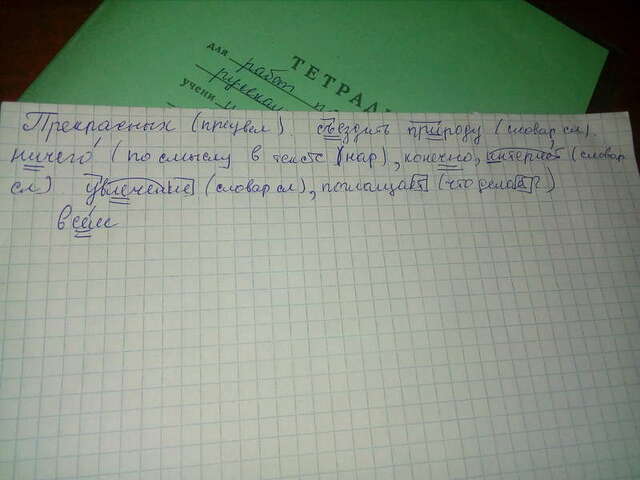 ТЕТРАД
для работ п
русском
учени
Прекрасных (прецвсл) съездить природу (словар сл),
ничего (по смыслу в тексте (нар), конечно, интернет (словар
сл) увлечение (словар сл), поглощает (что делает?)
всем